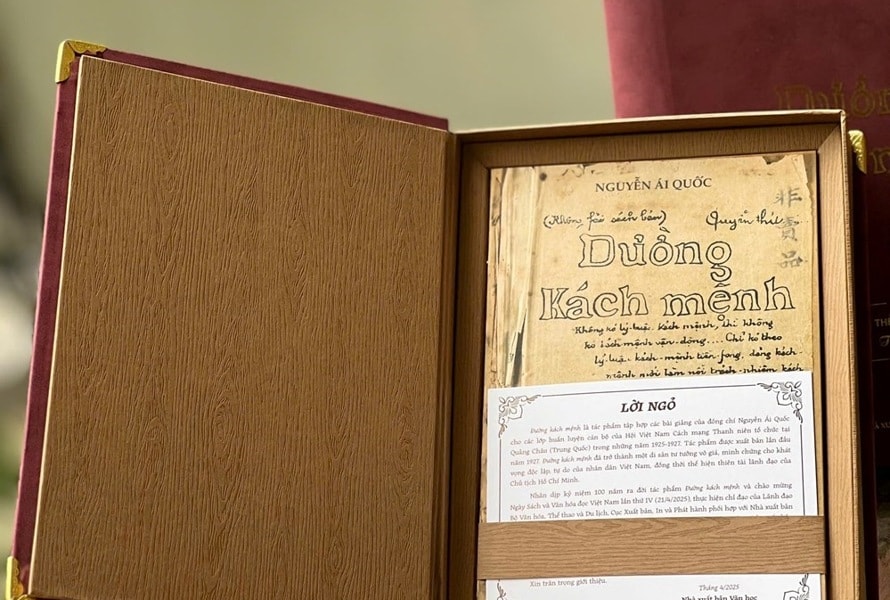 NGUYỄN ÁI QUỐC
(Không fải sách bán) Quyển thứ
非
賣
品
Đường
Kách mệnh
Không kó lý-luận kách mệnh, thì không
kó kách mệnh vận-động.... Chỉ kó theo
lý-luận kách-mệnh tiền-fong, đảng kách-
mệnh mới làm nổi trách-nhiệm kách
LỜI NGỎ
Đường kách mệnh là tác phẩm tập hợp các bài giảng của đồng chí Nguyễn Ái Quốc
cho các lớp huấn luyện cán bộ của Hội Việt Nam Cách mạng Thanh niên tổ chức tại
Quảng Châu (Trung Quốc) trong những năm 1925-1927. Tác phẩm được xuất bản lần đầu
năm 1927. Đường kách mệnh đã trở thành một di sản tư tưởng vô giá, minh chứng cho khát
vọng độc lập, tự do của nhân dân Việt Nam, đồng thời thể hiện thiên tài lãnh đạo của
Chủ tịch Hồ Chí Minh.
Nhân dịp kỷ niệm 100 năm ra đời tác phẩm Đường kách mệnh và chào mừng
Ngày Sách và Văn hóa đọc Việt Nam lần thứ IV (21/4/2025), thực hiện chỉ đạo của Lãnh đạo
Bộ Văn hóa, Thể thao và Du lịch, Cục Xuất bản, In và Phát hành phối hợp với Nhà xuất bản
Xin trân trọng giới thiệu.
Tháng 4/2025
Nhà xuất bản Văn học